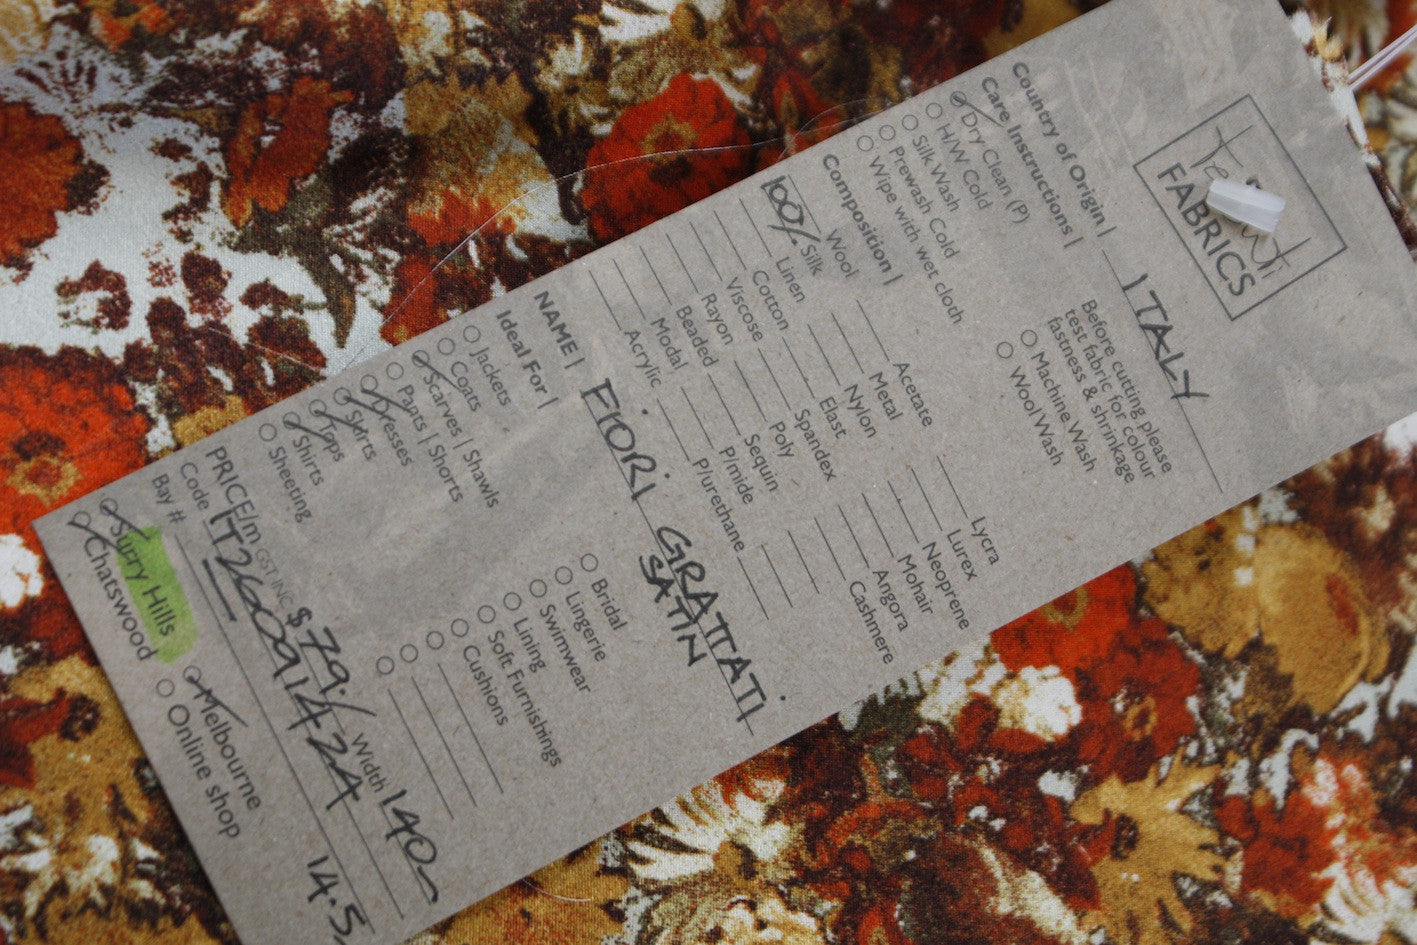 FABRICS
Country of Origin | ITALY
Care Instructions |
Dry Clean (P)
H/W Cold
Silk Wash
Prewash Cold
Wipe with wet cloth
Before cutting please
test fabric for colour
fastness & shrinkage
Machine Wash
Wool Wash
Composition |
Wool
100% Silk
Linen
Cotton
Viscose
Rayon
Beaded
Modal
Acrylic
Acetate
Metal
Nylon
Elast
Spandex
Poly
Sequin
P/mide
P/urethane
Lycra
Lurex
Neoprene
Mohair
Angora
Cashmere
NAME | FIORI GRATTATI
SATIN
Ideal For |
Jackets
Coats
Scarves | Shawls
Pants | Shorts
Dresses
Skirts
Tops
Shirts
Sheeting
Bridal
Lingerie
Swimwear
Lining
Soft Furnishings
Cushions
PRICE/m GST INC $79./ Width 140
Code IT26091424A
Bay # 14.5
Surry Hills
Chatswood
Melbourne
Online shop